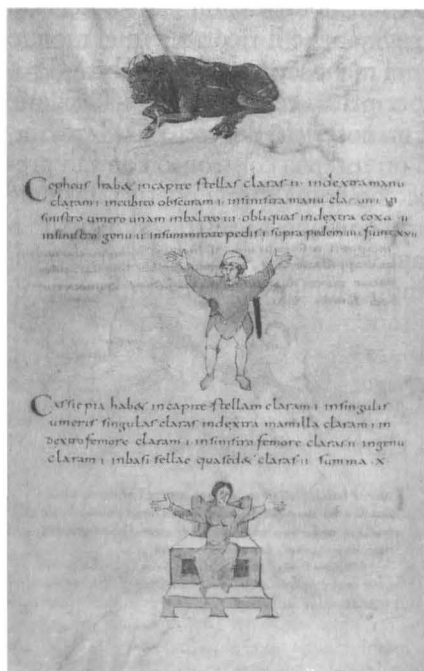 Cepheus habet in capite stellas claras ii· in dextra manu
claram i· in cubito obscuram i· in sinistra manu claram i·
sinistro umero unam in balteo iii· obliquas in dextra coxa ii
in sinistro genu ii· in summitate pedis i· supra pedem iiii
Cassiepia habet in capite stellam claram i· in singulis
umeris singulas claras in dextra mamilla claram i· in
dextro femore claram i· in sinistro femore claras ii· in genu
claram i· in basi sellae qua sedet claras ii· summa ·x·